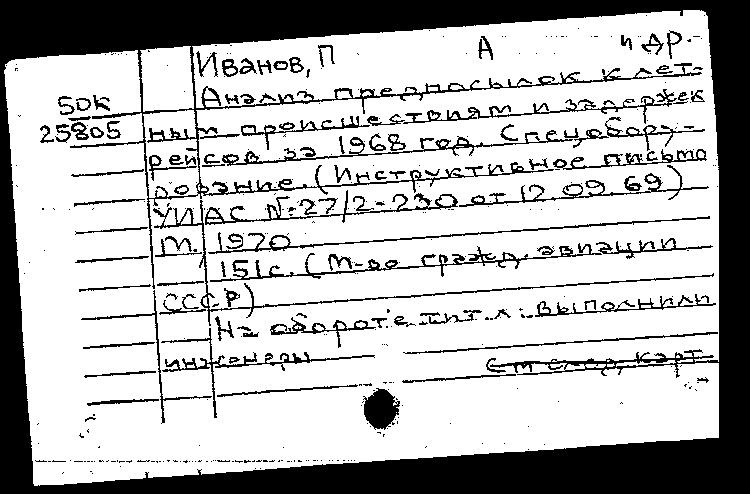 Иванов, П А и др.
50к
Анализ предпосылок к лет-
25805
ным происшествиям и задержек
рейсов за 1968 год. Спецобору-
дование. (Инструктивное письмо
УИАС №27/2-230 от 12.09.69)
М., 1970
151с. (М-во гражд. авиации
СССР).
На обороте тит. л.: выполнили
инженеры
См след. карт